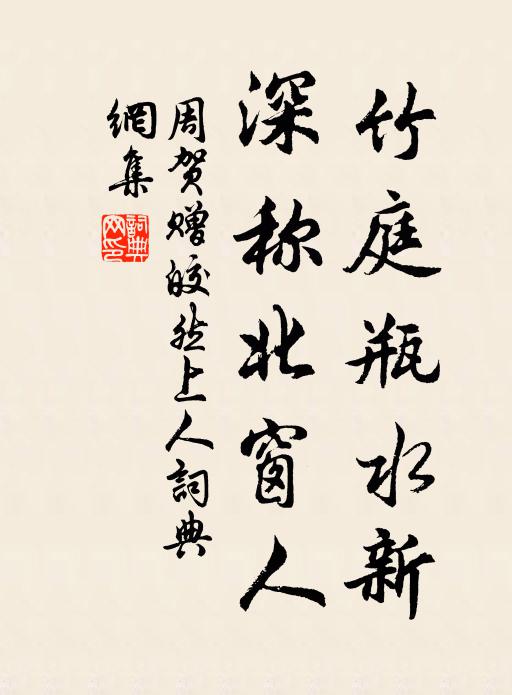 竹庭瓶水新
深称北窗人
周贺赠皎然上人詞典
網集
詞典網印